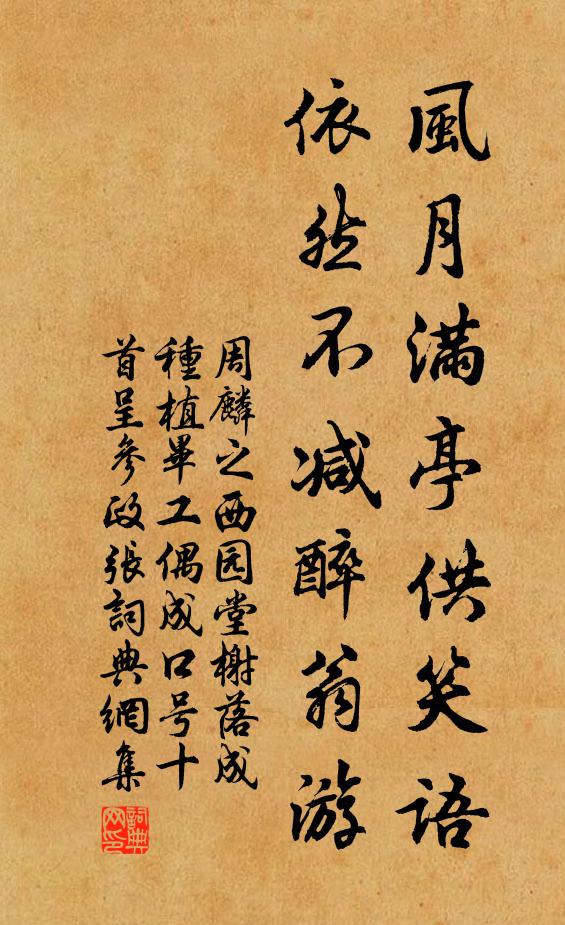 風月满亭供笑语
依然不减醉翁游
周麟之西园堂榭落成
種植畢工偶成口号十
首呈參政張詞典網集
詞典网印